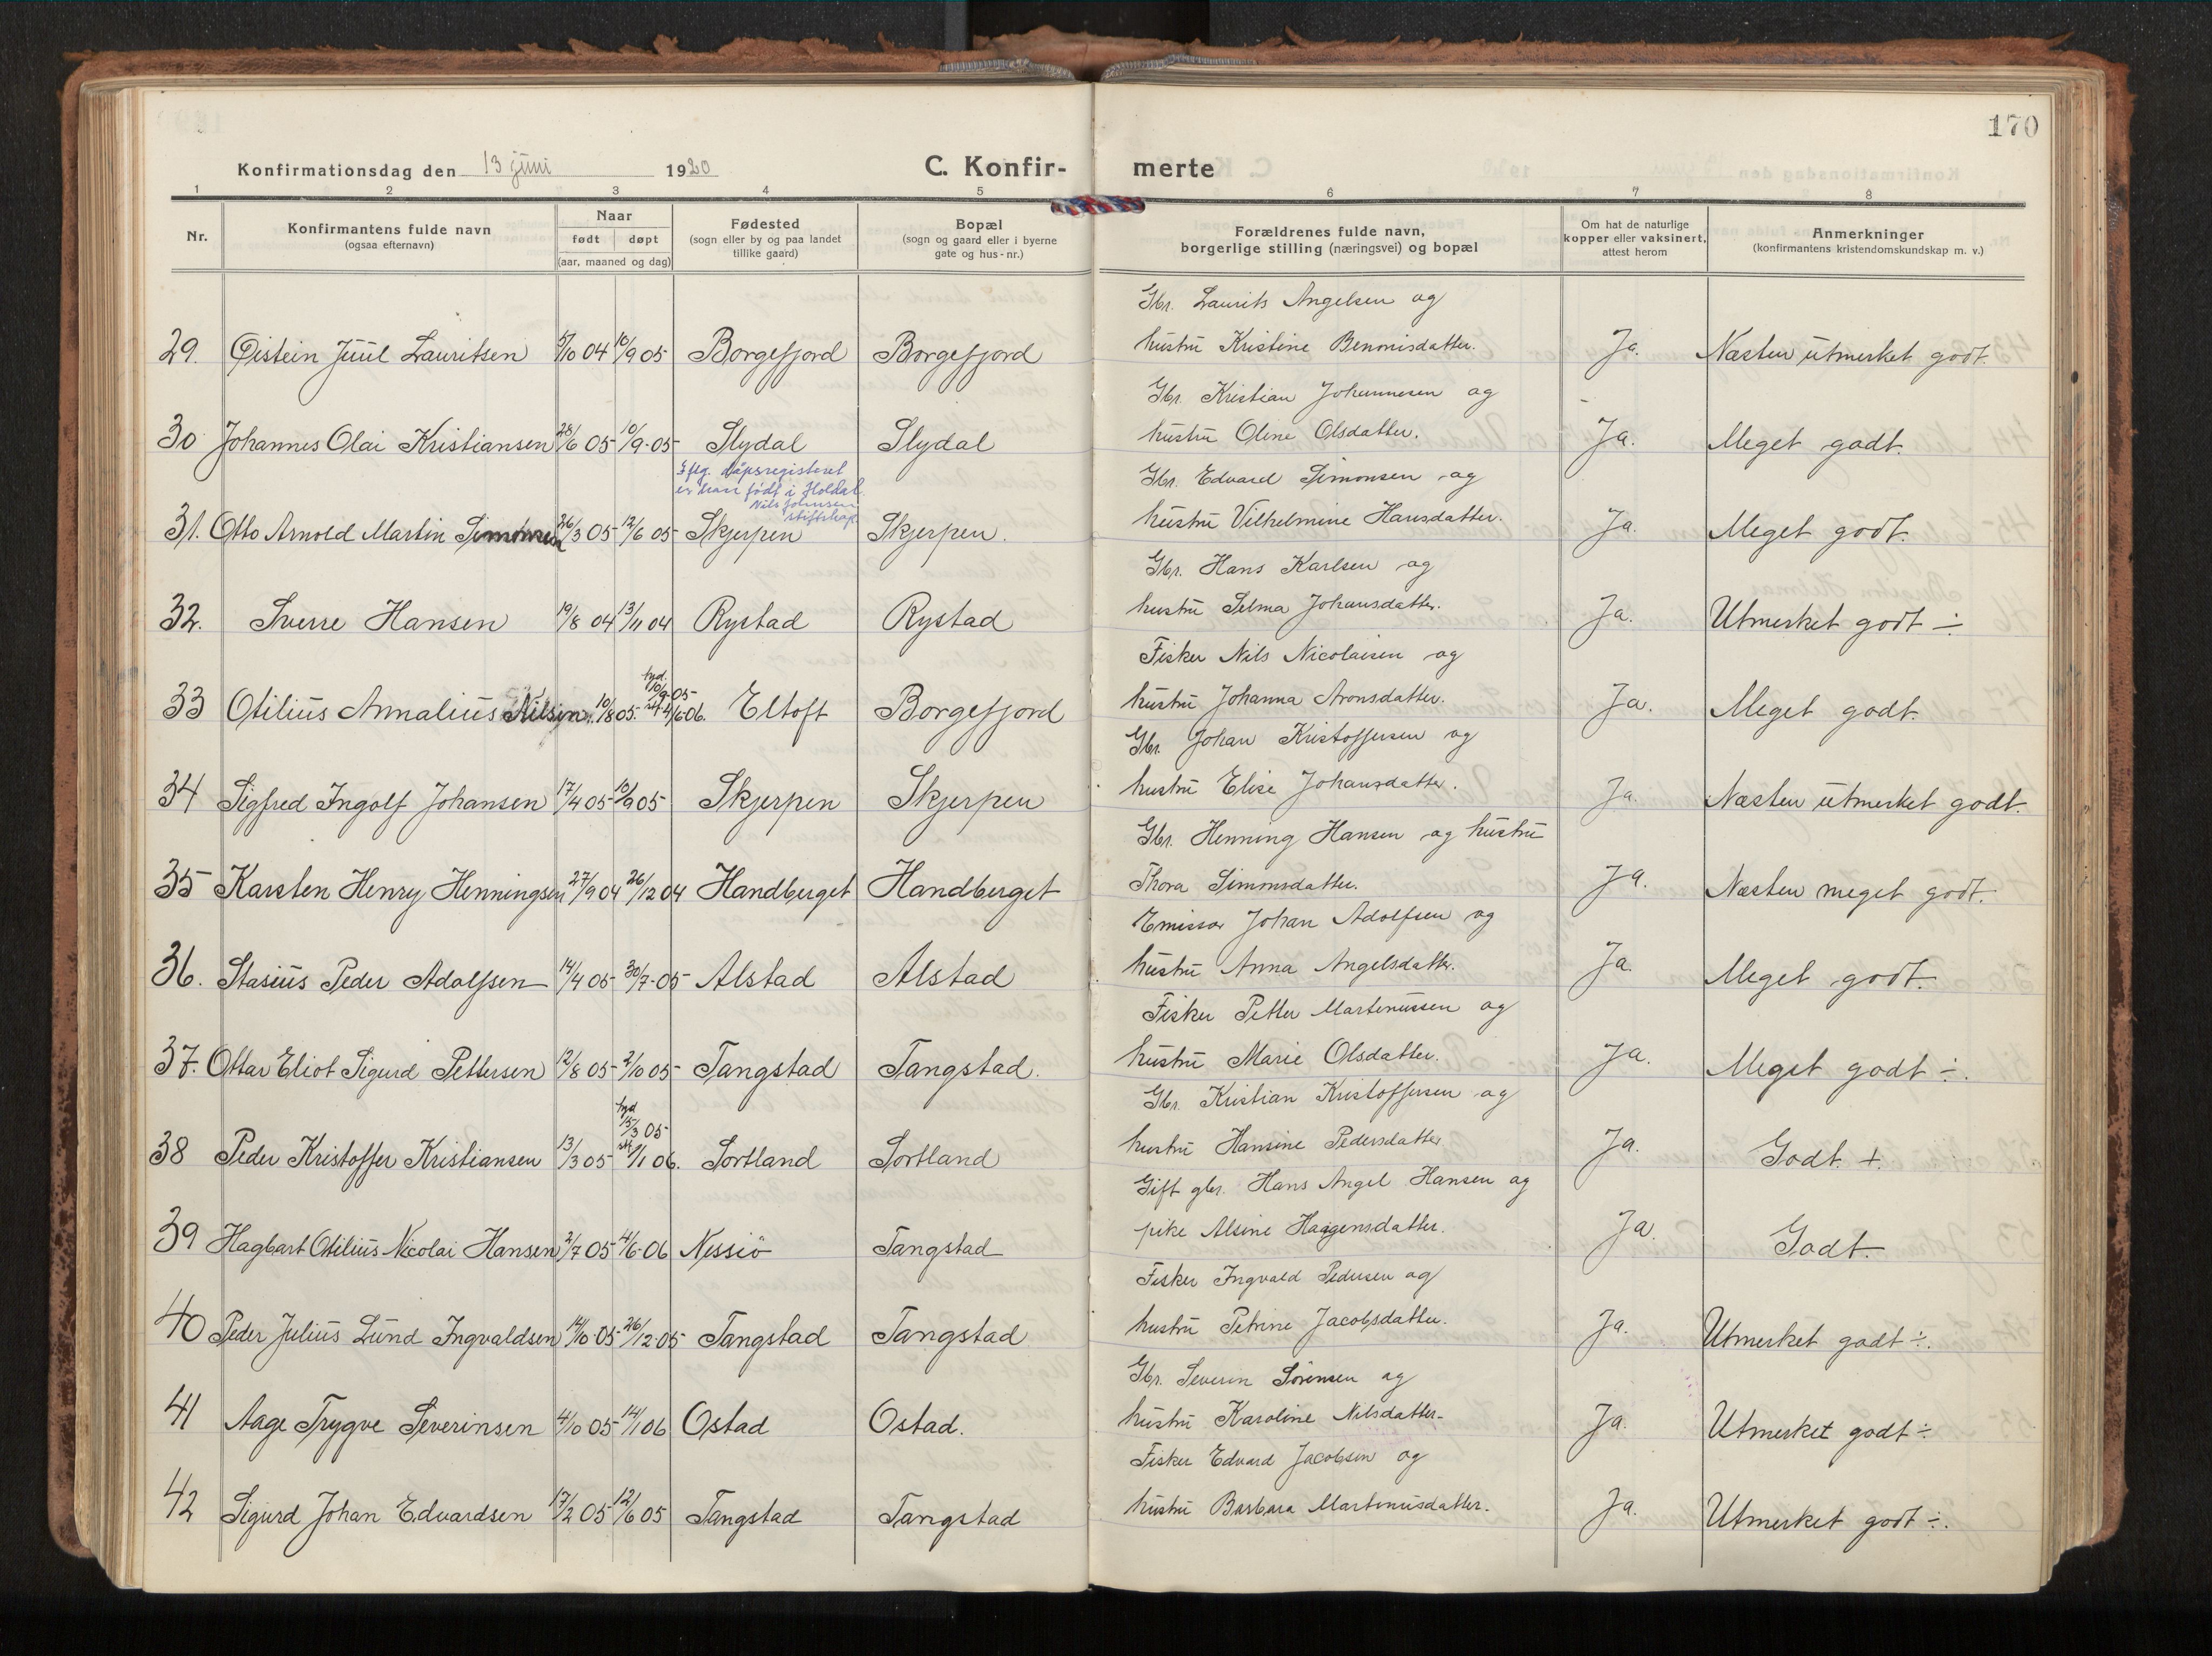 170
Konfirmationsdag den 13 juni 1920 C. Konfir- merte
1 2 3 4 5 6 7 8
Nr. Konfirmantens fulde navn (ogsaa efternavn) Naar født døpt (aar, maaned og dag) Fødested (sogn eller by og paa landet tillike gaard) Bopæl (sogn og gaard eller i byerne gate og hus-nr.) Forældrenes fulde navn, borgerlige stilling (næringsvei) og bopæl Om hat de naturlige kopper eller vaksinert, attest herom Anmerkninger (konfirmantens kristendomskundskap m. v.)
Gbr. Laurits Angelsen og
29. Øistein Juul Lauritsen 5/10 04 10/9 05 Borgefjord Borgefjord hustru Kristine Benonisdatter. Ja. Næsten utmerket godt.
Gbr. Kristian Johannesen og
30 Johannes Olai Kristiansen 28/6 05 10/9-05 Slydal Slydal hustru Oline Olsdatter. Ja. Meget godt.
Iflg. dåpsregisteret
er han født i Holdal
Nils Johnsen
stiftskap.
Gbr. Edvard Simonsen og
31. Otto Arnold Martin Simonsen 26/3 05 12/6 05 Skjerpen Skjerpen. hustru Vilhelmine Hansdatter. Ja. Meget godt.
Gbr. Hans Karlsen og
32. Sverre Hansen 19/8 04 13/11 04 Rystad Rystad hustru Selma Johansdatter. Ja. Utmerket godt ÷
Fisker Nils Nicolaisen og
hjd. 10/9-05
33 Otilius Annalius Nilsen. 10/8 05. 4/6-06. Eltoft Borgefjord hustru Johanna Aronsdatter. Ja. Meget godt.
Gbr. Johan Kristoffersen og
34 Sigfred Ingolf Johansen 17/4 05 10/9 05 Skjerpen Skjerpen hustru Elise Johansdatter. Ja. Næsten utmerket godt.
Gbr. Henning Hansen og hustru
35 Karsten Henry Henningsen 27/9 04 26/12 04 Handberget Handberget Thora Simonsdatter. Ja. Næsten meget godt.
Emissær Johan Adolfsen og
36. Stasius Peder Adolfsen 14/4 05 30/7-05 Alstad Alstad hustru Anna Angelsdatter. Ja. Meget godt.
Fisker Petter Martinussen og
37. Ottar Eliot Sigurd Pettersen 12/8 05 2/10 05 Tangstad Tangstad. hustru Marie Olsdatter. Ja. Meget godt ÷.
Gbr. Kristian Kristoffersen og
hjd 15/3 05
38 Peder Kristoffer Kristiansen 13/3 05 /1 06. Sortland Sortland hustru Hansine Pedersdatter Ja. Godt +.
Gift gbr. Hans Angel Hansen og
39 Hagbart Otilius Nicolai Hansen 2/7 05 4/6-06 Nessjö Tangstad pike Alsine Haagensdatter. Ja. Godt.
Fisker Ingvald Pedersen og
40 Peder Julius Lund Ingvaldsen 14/10-05 26/12-05 Tangstad Tangstad hustru Petrine Jacobsdatter. Ja. Utmerket godt ÷.
Gbr. Severin Sörensen og
41 Aage Trygve Severinsen 4/10 05 14/1 06 Ostad Ostad. hustru Karoline Nilsdatter. Ja. Utmerket godt ÷
Fisker Edvard Jacobsen og
42 Sigurd Johan Edvardsen 17/2 05 12/6 05 Tangstad Tangstad hustru Barbara Martinusdatter. Ja. Utmerket godt ÷.